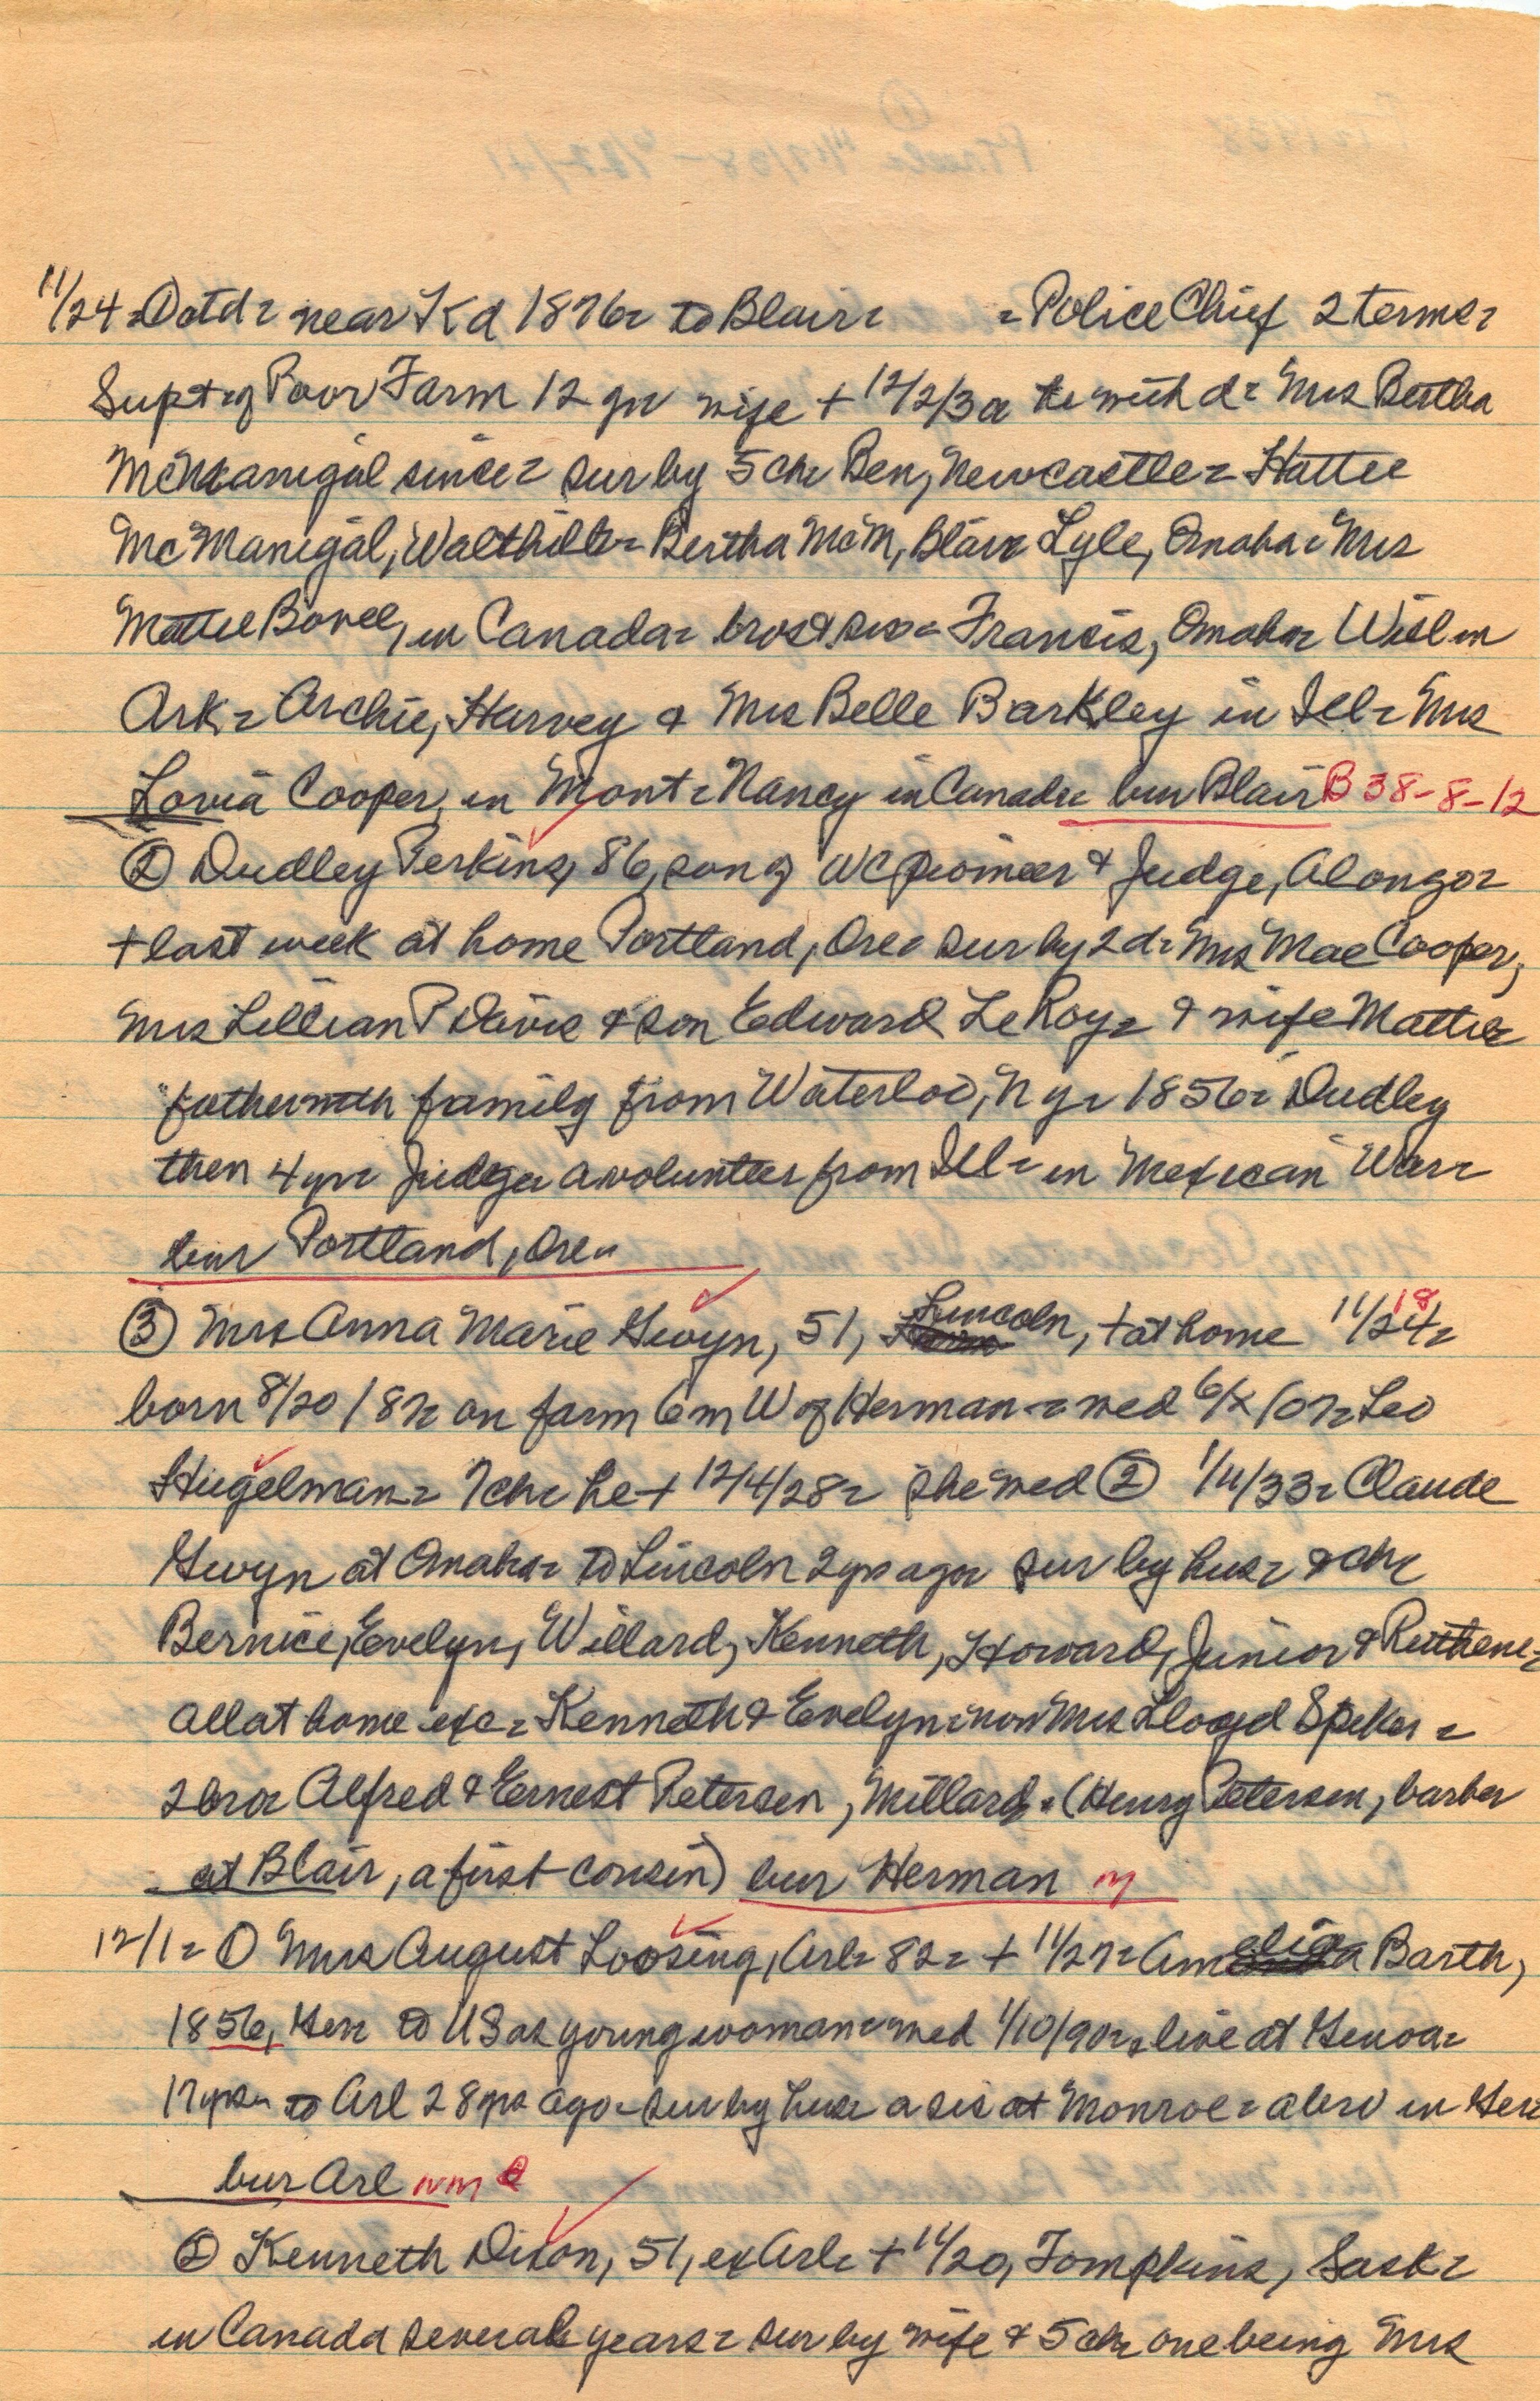 11/24 = Dotd = near Kd 1876 = to Blair = = Police Chief 2 terms =
Supt of Poor Farm 12 yr wife + 12/2/3 a he with d = Mrs Bertha
McManigal since = sur by 5 ch = Ben, Newcastle = Hattie
McManigal, Walthill = Bertha McM, Blair Lyle, Omaha = Mrs
Mattie Bovee, in Canada = bros & sis = Francis, Omaha = Will in
Ark = Archie, Harvey & Mrs Belle Barkley in Ill = Mrs
Lovia Cooper, in Mont = Nancy in Canada = bur Blair B 38-8-12
② Dudley Perkins, 86, son of WC pioneer & Judge, Alonzo =
+ last week at home Portland, Ore = sur by 2 d = Mrs Mae Cooper,
Mrs Lillian P Davis & son Edward LeRoy = & wife Mattie =
father with family from Waterloo, N Y = 1856 = Dudley
then 4 yr = Judge a volunteer from Ill = in Mexican War =
bur Portland, Ore =
③ Mrs Anna Marie Gwyn, 51, Lincoln, + at home 11/18
born 8/20/87 on farm 6 m W of Herman = wed 6/x/07 = Leo
Hugelman = 7 ch = he + 12/4/28 = she wed ② 1/11/33 = Claude
Gwyn at Omaha = to Lincoln 2 yrs ago = sur by hus = & ch =
Bernice, Evelyn, Willard, Kenneth, Howard, Junior & Ruthene =
all at home exc = Kenneth & Evelyn = now Mrs Lloyd Speker =
2 bro = Alfred & Ernest Petersen, Millard = (Henry Petersen, barber
at Blair, a first cousin) bur Herman m
12/1 = ① Mrs August Loosing, Arl = 82 = + 11/27 = Amelia Barth,
1856, Ger = to US as young woman = wed 1/10/90 = live at Genoa =
17 yrs = to Arl 28 yrs ago = sur by hus = a sis at Monroe = a bro in Ger =
bur Arl nm
② Kenneth Dixon, 51, ex Arl = + 11/20, Tompkins, Sask =
in Canada several years = sur by wife & 5 ch = one being Mrs